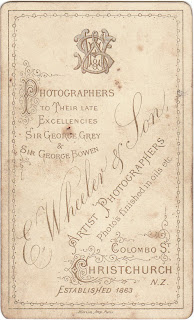 PHOTOGRAPHERS
TO THEIR LATE
EXCELLENCIES
SIR GEORGE GREY
&
SIR GEORGE BOWEN
E. Wheeler & Son,
ARTIST PHOTOGRAPHERS
Photo's finished in oils etc.
COLOMBO ST
CHRISTCHURCH
N.Z.
ESTABLISHED 1863